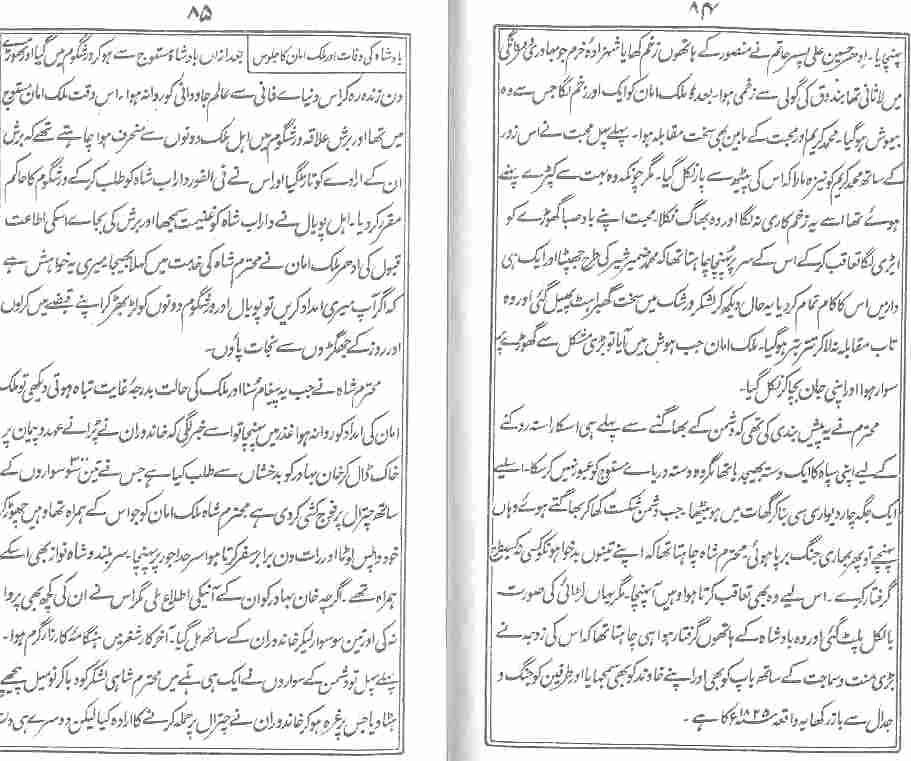 ۸۴
پہنچایا۔ ادھر حسین علی پسر حاتم نے منصور کے ہاتھوں زخم کھایا شہزادہ خرم جو بہادری و مردانگی
میں لاثانی تھا بندوق کی گولی سے زخمی ہوا۔ بعدہٗ ملک امان کو ایک اور زخم لگا جس سے وہ
بیہوش ہوگیا۔ محمد کریم اور محبت کے مابین بھی سخت مقابلہ ہوا۔ پہلے پہل محبت نے اس زور
کے ساتھ محمد کریم کو نیزہ مارا کہ اس کی پیٹھ سے پار نکل گیا۔ مگر چونکہ وہ بہت سے کپڑے پہنے
ہوئے تھا اسے یہ زخم کاری نہ لگا اور وہ بھاگ نکلا۔ محبت اپنے باد صبا گھوڑے کو
ایڑی لگا تعاقب کرکے اس کے سر پر پہنچا چاہتا تھا کہ محمد ضمیر شیر کی طرح جھپٹا اور ایک ہی
وار میں اس کا کام تمام کردیا یہ حال دیکھ کر لشکر ورشگ میں سخت گھبراہٹ پھیل گئی اور وہ
تاب مقابلہ نہ لا کر تتر بتر ہوگیا۔ ملک امان جب ہوش میں آیا تو بڑی مشکل سے گھوڑے پر
سوار ہوا اور اپنی جان بچا کر نکل گیا۔
محترم نے یہ پیش بندی کی تھی کہ دشمن کے بھاگنے سے پہلے ہی اسکا راستہ روکنے
کے لیے اپنی سپاہ کا ایک دستہ بھیجدیا تھا مگر وہ دستہ دریاے مستوج کو عبور نہیں کرسکا۔ اسلیے
ایک جگہ چار دیواری سی بنا کر گھات میں ہو بیٹھا۔ جب دشمن شکست کھا کر بھاگتے ہوئے وہاں
پہنچے تو پھر بھاری جنگ برپا ہوئی۔ محترم شاہ چاہتا تھا کہ اپنے تینوں بدخواہونکو کسی نہ کسی طرح
گرفتار کرے۔ اس لیے وہ بھی تعاقب کرتا ہوا وہیں آپہنچا۔ مگر یہاں لڑائی کی صورت
بالکل پلٹ گئی اور وہ بادشاہ کے ہاتھوں گرفتار ہوا ہی چاہتا تھا کہ اس کی زوجہ نے
بڑی منت و سماجت کے ساتھ باپ کو بھی اور اپنے خاوند کو بھی سمجھایا اور طرفین کو جنگ و
جدال سے باز رکھا یہ واقعہ ۱۸۲۵ء کا ہے۔
۸۵
بادشاہ کی وفات اور ملک امان کا جلوس بعد ازاں بادشاہ مستوج سے ہو کر ورشگوم میں گیا اور تھوڑے
دن زندہ رہ کر اس دنیاے فانی سے عالم جاودانی کو روانہ ہوا۔ اس وقت ملک امان مستوج
میں تھا اور برش علاقہ ورشگوم میں اہل ملک دونوں سے منحرف ہوا چاہتے تھے کہ برش
ان کے ارادے کو تاڑ گیا اور اس نے فی الفور داراب شاہ کو طلب کرکے ورشگوم کا حاکم
مقرر کردیا۔ اہل پویال نے داراب شاہ کو غنیمت سمجھا اور برش کی بجاے اسکی اطاعت
قبول کی ادھر ملک امان نے محترم شاہ کی خدمت میں کہلا بھیجا میری یہ خواہش ہے
کہ اگر آپ میری امداد کریں تو پویال اور ورشگوم دونوں کو لڑ بھڑ کر اپنے قبضے میں کرلوں
اور روز کے جھگڑوں سے نجات پاؤں۔
محترم شاہ نے جب یہ پیغام سنا اور ملک کی حالت بدرجہ غایت تباہ ہوتی دیکھی تو ملک
امان کی امداد کو روانہ ہوا غذر میں پہنچا تو اسے خبر لگی کہ خاندوران نے پرانے عہد و پیمان پر
خاک ڈال کر خان بہادر کو بدخشاں سے طلب کیا ہے جس نے تین سو سواروں کے
ساتھ چترال پر فوج کشی کردی ہے محترم شاہ ملک امان کو جو اس کے ہمراہ تھا وہیں چھوڑ کر
خود واپس لوٹا اور رات دن برابر سفر کرتا ہوا سرحد اجور پر پہنچا۔ سربلند و شاہ نواز بھی اسکے
ہمراہ تھے۔ اگرچہ خان بہادر کو ان کے آنیکی اطلاع ملی مگر اس نے ان کی کچھ بھی پروا
نہ کی اور تین سو سوار لیکر خاندوران کے ساتھ مل گیا۔ آخر کار شغر میں ہنگامہ کارزار گرم ہوا۔
پہلے پہل تو دشمن کے سواروں نے ایک ہی ہلے میں محترم شاہی لشکر کو دبا کر نو میل پیچھے
ہٹا دیا جس پر غرہ ہو کر خاندوران نے چترال پر حملہ کرنے کا ارادہ کیا لیکن دوسرے ہی دن